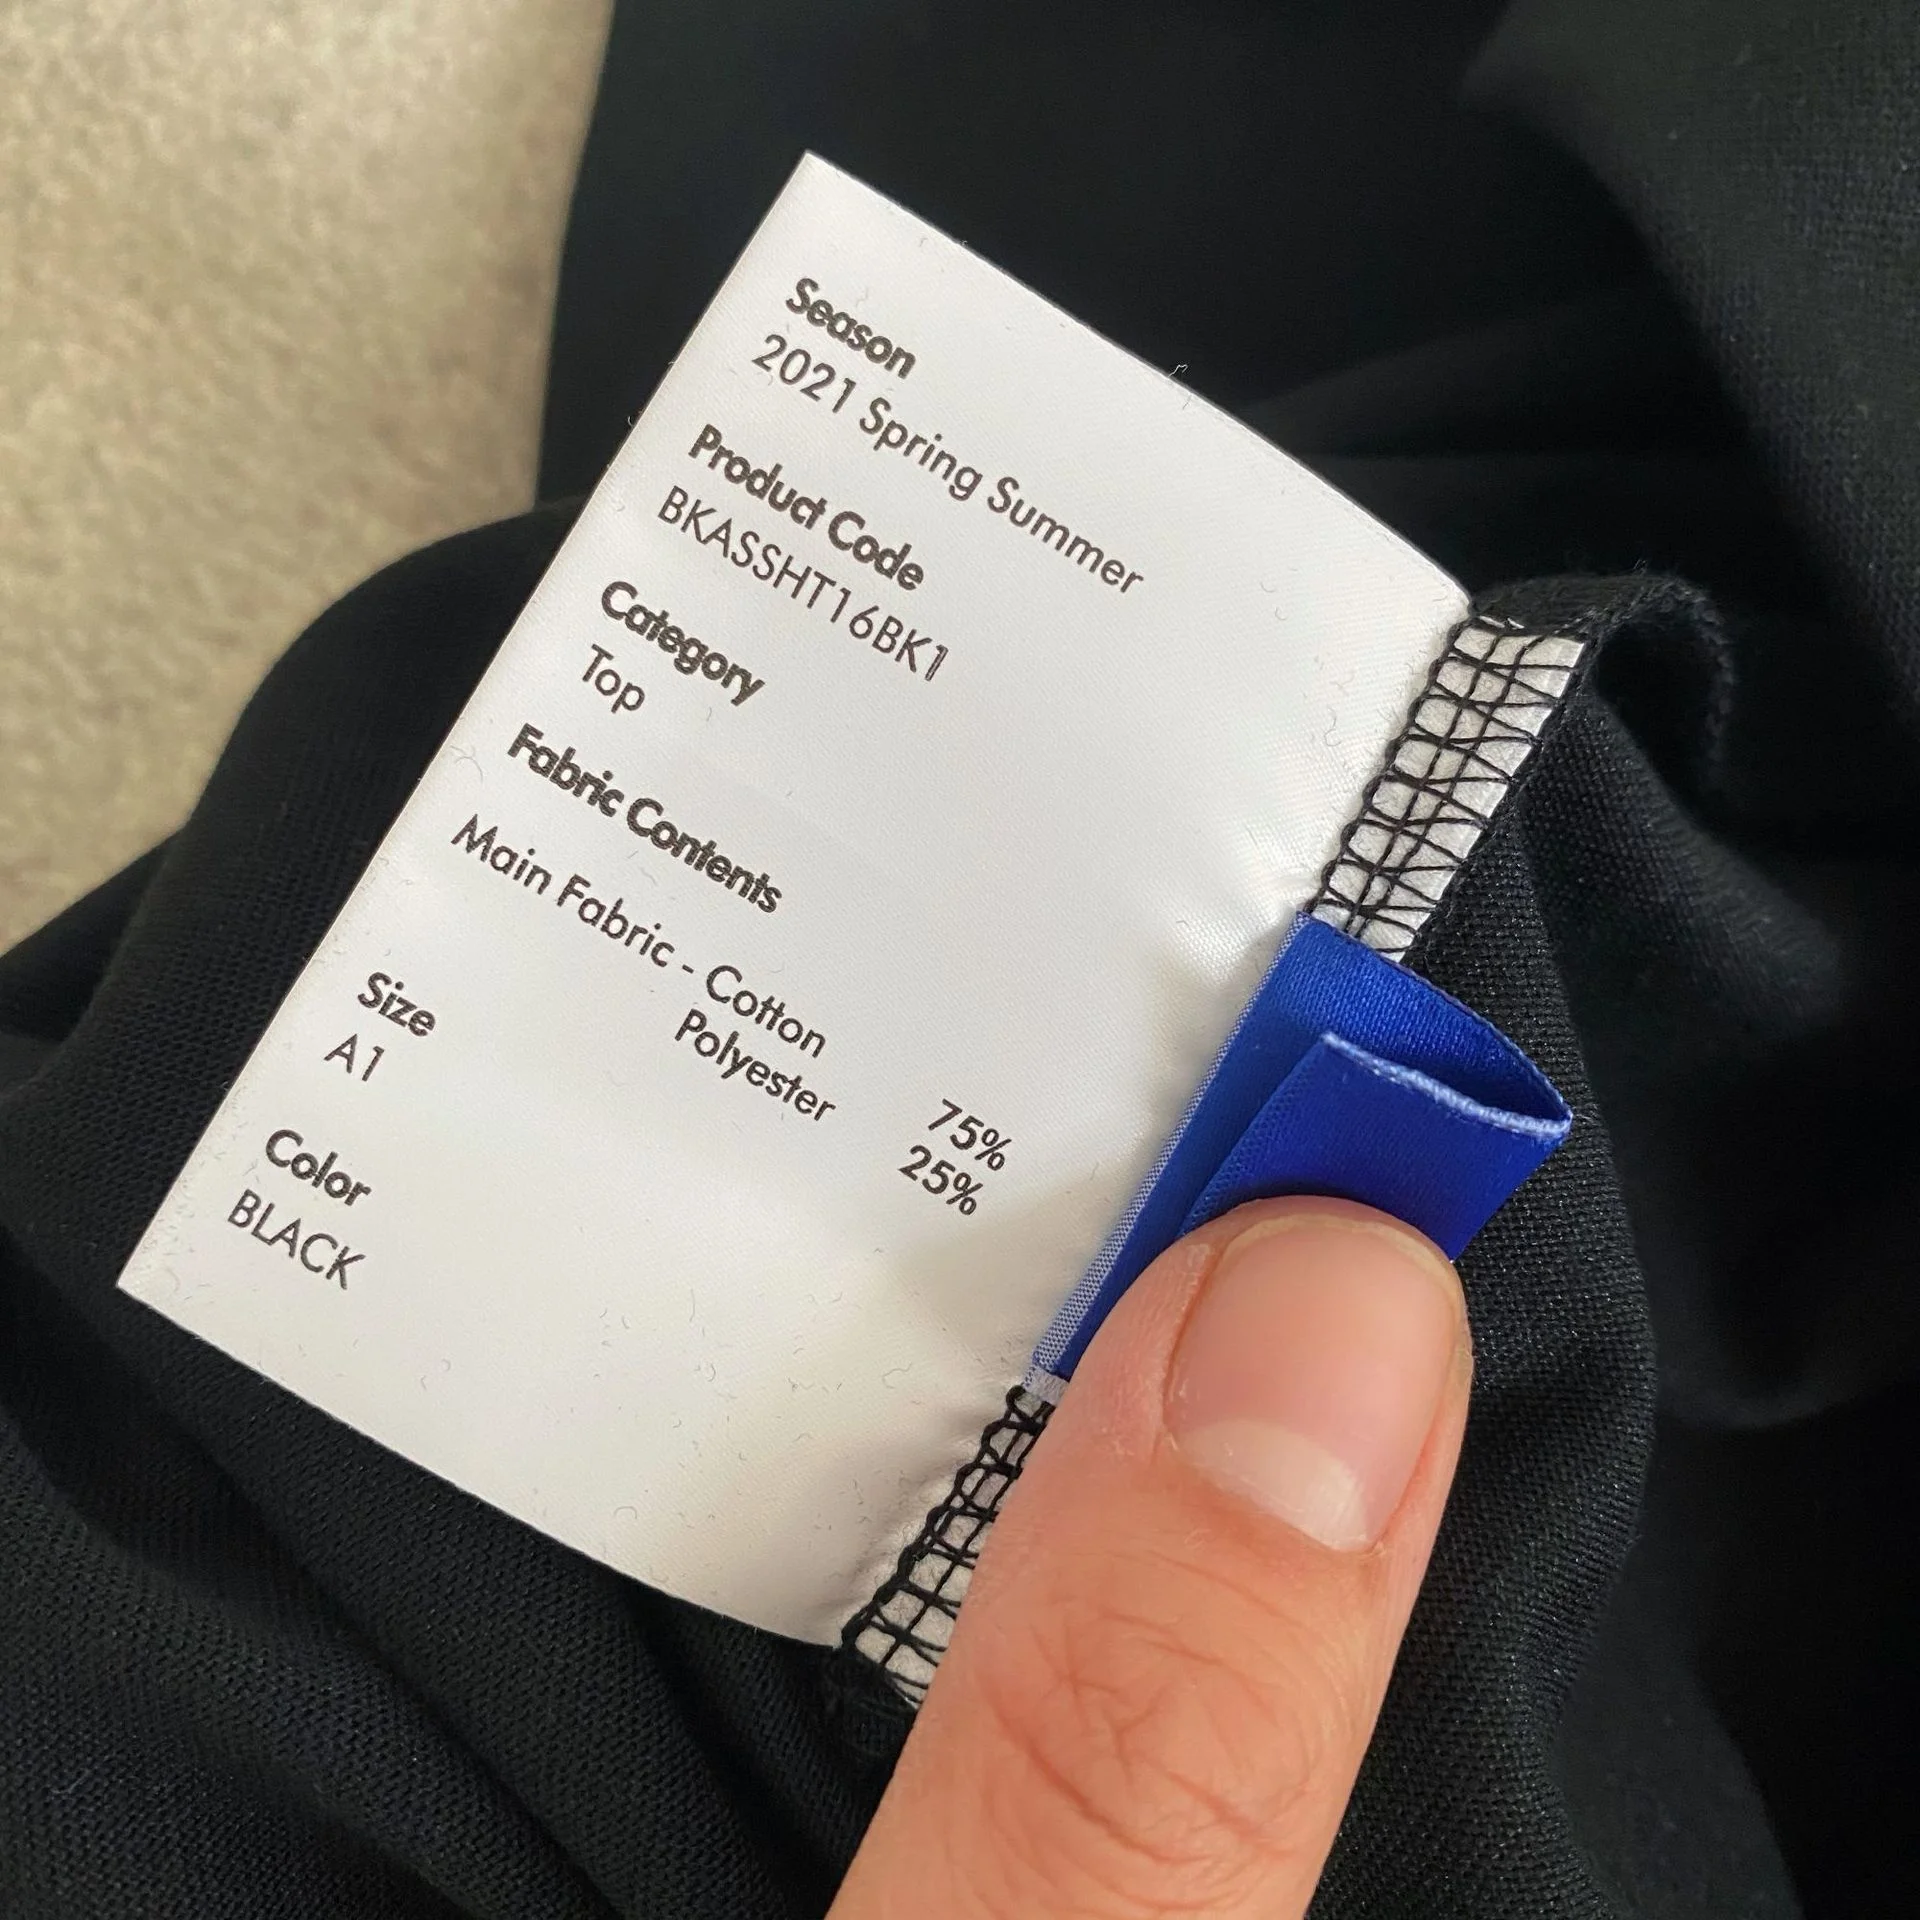 Season
2021 Spring Summer
Product Code
BKASSHT16BK1
Category
Top
Fabric Contents
Main Fabric - Cotton 75%
Polyester 25%
Size
A1
Color
BLACK